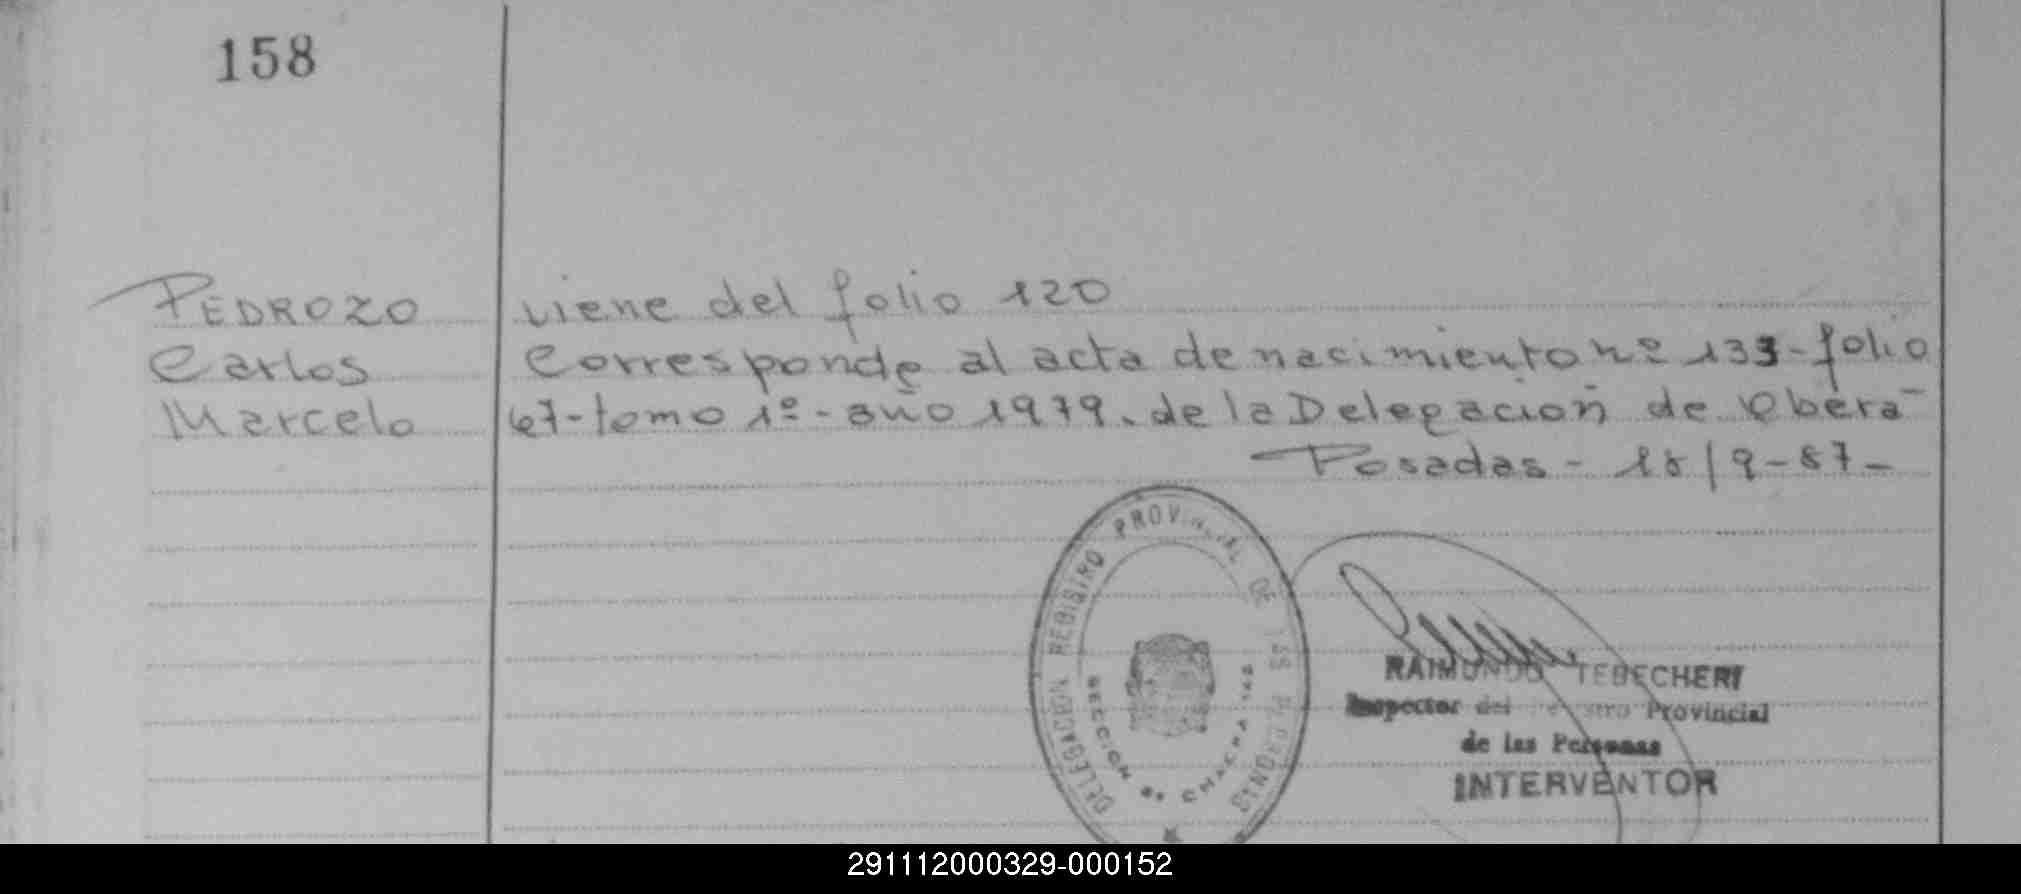 158
PEDROZO
Carlos
Marcelo
viene del folio 120
Corresponde al acta de nacimiento nº 133-folio
67-tomo 1º-año 1979.de la Delegación de Oberá-
Posadas - 18/9-87-
DELEGACION REGISTRO PROVINCIAL DE LAS PERSONAS
SECCION Bª CHACRA 148
RAIMUNDO TEBECHERI
Inspector del Registro Provincial
de las Personas
INTERVENTOR
291112000329-000152